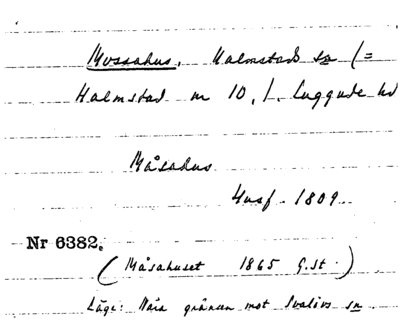 Mossahus, Halmstads sn (=
Halmstad nr 10, 1. Luggude hd
Måsahus
Husf. 1809.
Nr 6382.
(Måsahuset 1865 G.st.)
Läge: Nära gränsen mot Svalövs sn